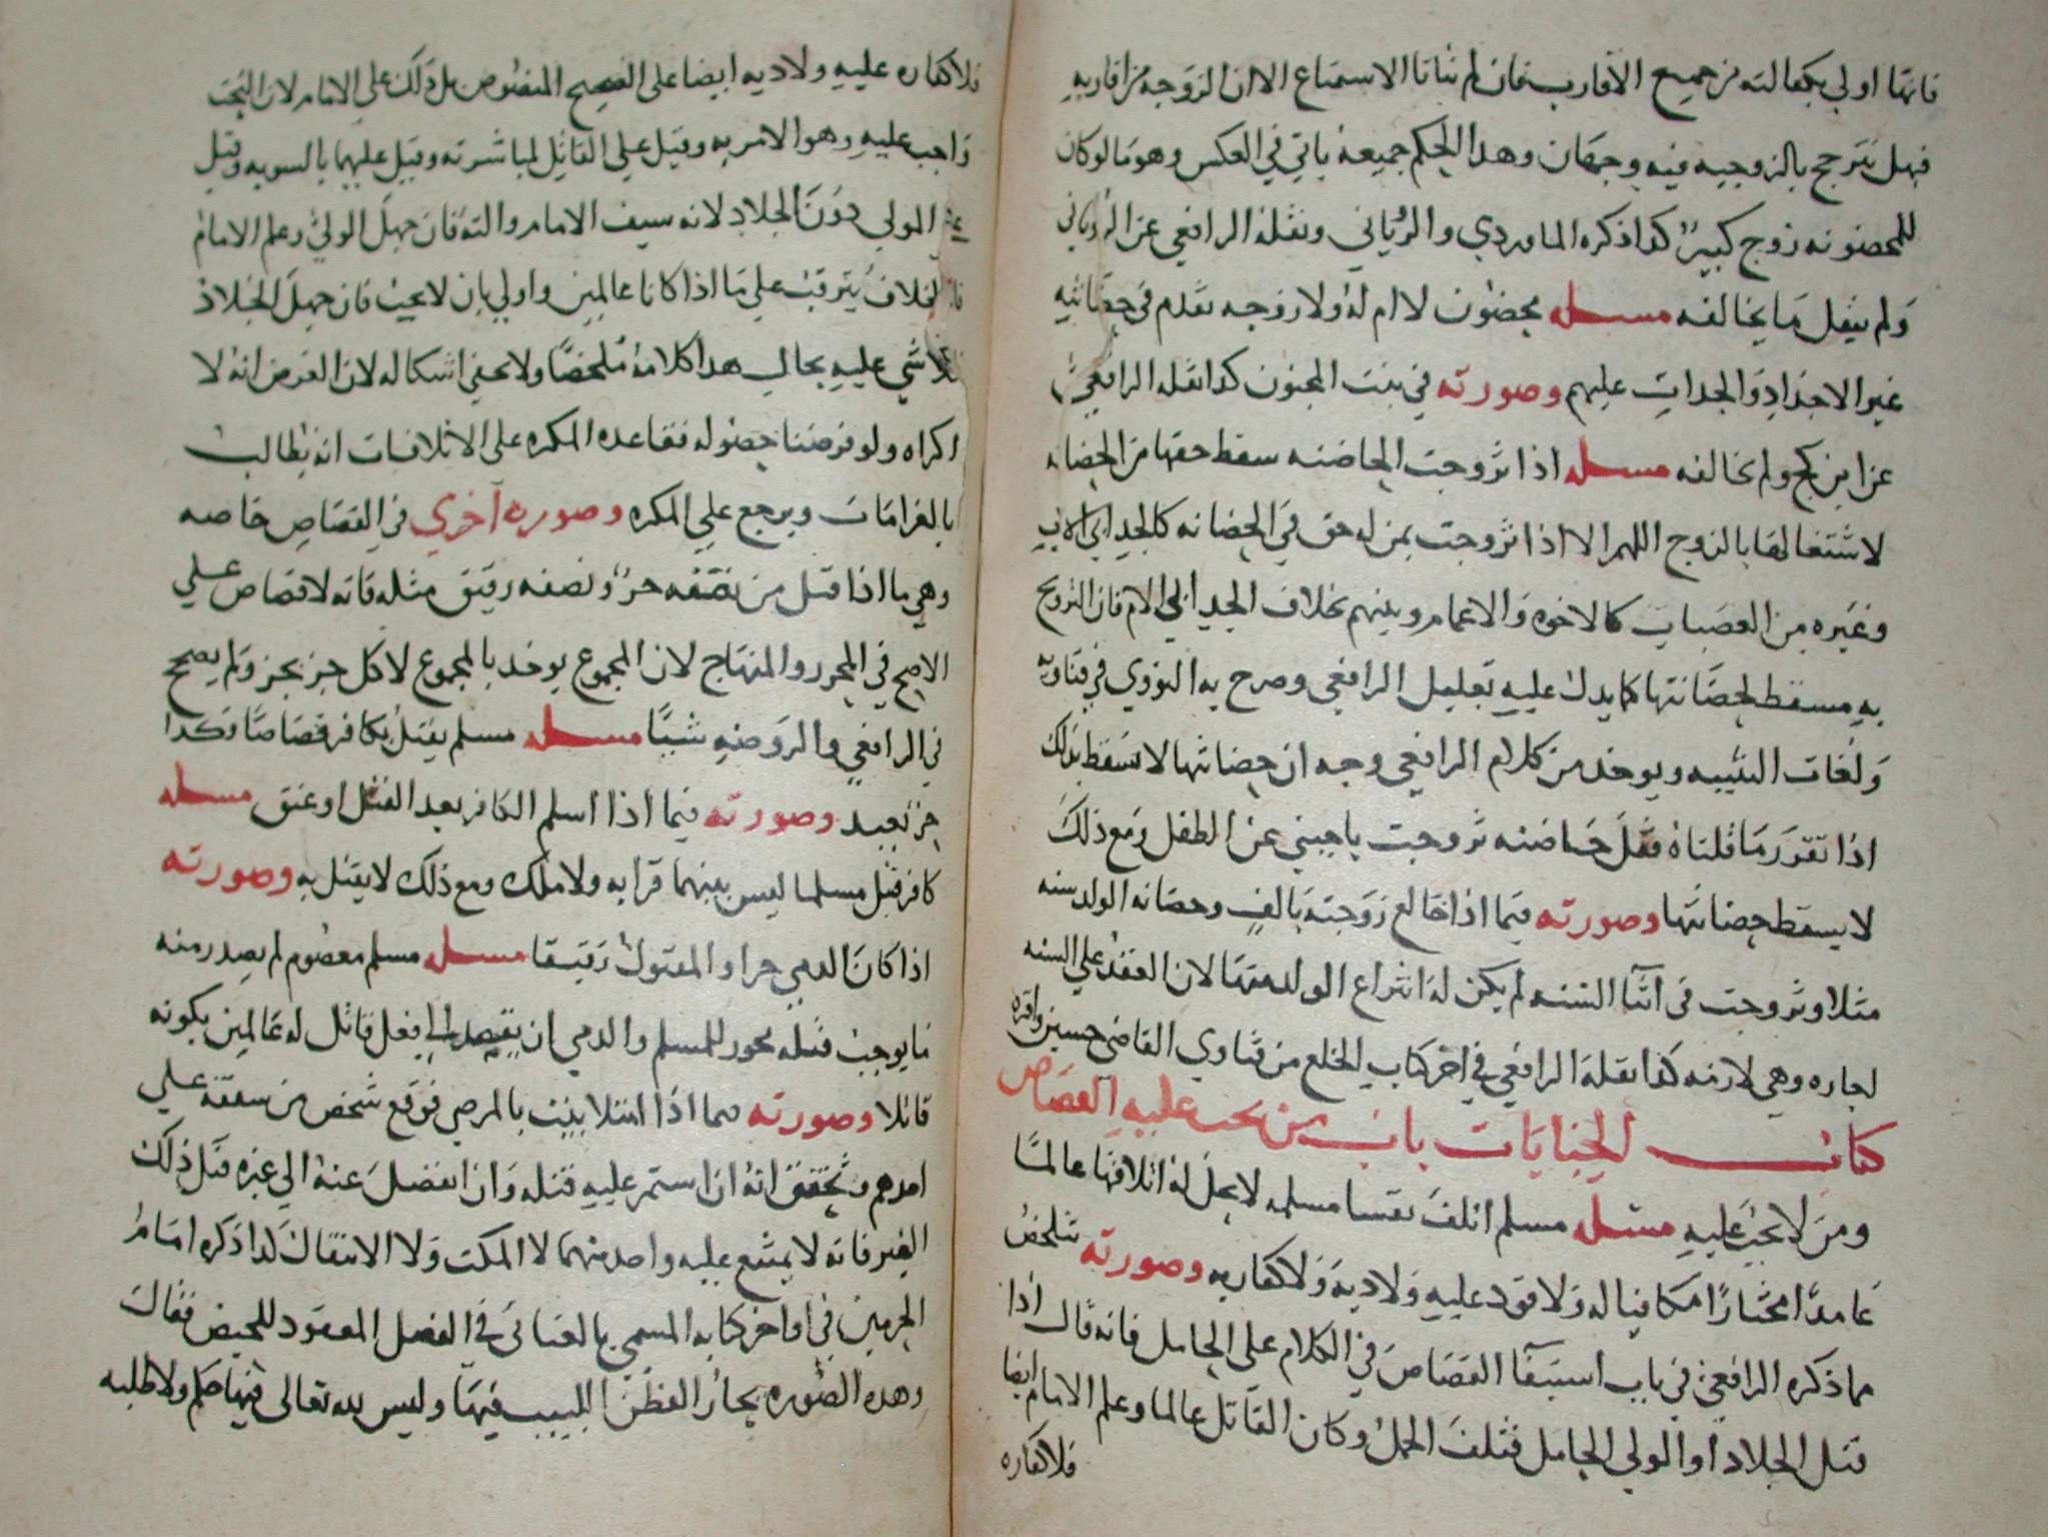 فانها اولى بكفالته من جميع الاقارب فان لم يتاتا الاستمتاع الا ان الزوجه من اقاربه
فهل تترجح بالزوجيه فيه وجهان وهذا الحكم جميعه ياتي في العكس وهو ما لو كان
للمحضونه زوج كبير كذا ذكره الماوردي والروياني ونقله الرافعي عن الروياني
ولم ينقل ما يخالفه مسله محضون لا ام له ولا زوجه تقدم في حضانته
غير الاجداد والجدات عليهم وصورته في بنت المجنون كذا نقله الرافعي
عن ابن كج ولم يخالفه مسله اذا تزوجت الحاضنه سقط حقها من الحضانه
لاشتغالها بالزوج اللهم الا اذا تزوجت بمن له حق في الحضانه كالجد ابي الاب
وغيره من العصبات كالاخوه والاعمام وبينهم بخلاف الجد ابي الام فان التزويج
به مسقط لحضانتها كما يدل عليه تعليل الرافعي وصرح به النووي في فتاويه
ولغات التنبيه ويوخذ من كلام الرافعي وجه ان حضانتها لا تسقط بذلك
اذا تقرر ما قلناه فقل حاضنه تزوجت باجنبي عن الطفل ومع ذلك
لا يسقط حضانتها وصورته فيما اذا خالع زوجته بالف وحضانه الولد سنه
مثلا وتزوجت في اثنا السنه لم يكن له انتزاع الولد منها لان العقد على السنه
اجاره وهي لازمه كذا نقله الرافعي في اخر كتاب الخلع من فتاوي القاضي حسين واقره
كتاب الجنايات باب من يجب عليه القصاص
ومن لا يجب عليه مسله مسلم اتلف نفسا مسلمه لا يحل له اتلافها عالما
عامدا مختارا مكافيا له ولا قود عليه ولا ديه ولا كفاره وصورته تتلخص
مما ذكره الرافعي في باب استيفا القصاص في الكلام على الحامل فانه قال اذا
قتل الجلاد او الولي الحامل فتلف الحمل وكان القاتل عالما وعلم الامام ايضا
فلا كفاره
فلا كفاره عليه ولا ديه ايضا على الصحيح المنصوص بل ذلك على الامام لان البحث
واجب عليه وهو الامر به وقيل على القاتل لمباشرته وقيل عليهما بالسويه وقيل
المولي دون الجلاد لانه سيف الامام والته فان جهل الولي وعلم الامام
فالخلاف يترقب على ما اذا كانا عالمين واولي بان لا يجب فان جهل الجلاد
فلا شي عليه بحال هذا كلامه ملخصا ولا يخفي اشكاله لان الفرض انه لا
اكراه ولو فرضنا حصوله فقاعده المكره على الاتلافات انه يطالب
بالغرامات ويرجع على المكره وصوره اخري في القصاص خاصه
وهي ما اذا قتل من نصفه حر ونصفه رقيق مثله فانه لا قصاص على
الاصح في المحرر والمنهاج لان المجموع يوخذ بالمجموع لا كل جز بجز ولم يصحح
في الرافعي والروضه شيا مسله مسلم يقتل بكافر قصاصا وكذا
حر بعبد وصورته فيما اذا اسلم الكافر بعد القتل او عتق مسله
كافر قتل مسلما ليس بينهما قرابه ولا ملك ومع ذلك لا يقتل به وصورته
اذا كان الذمي حرا والمقتول رقيقا مسله مسلم معصوم لم يصدر منه
ما يوجب قتله يجوز للمسلم والذمي ان يقصد الى فعل قاتل له عالمين بكونه
قاتلا وصورته فيما اذا امتلا بيت بالمرضي فوقع شخص من سقفه على
احدهم وتحقق انه ان استمر عليه قتله وان انفصل عنه الي غيره قتل ذلك
الغير فانه لا يمتنع عليه واحد منهما لا المكث ولا الانتقال كذا ذكره امام
الحرمين في اواخر كتابه المسمي بالغياثي في الفصل المعقود للحيض فقال
وهذه الصوره يحار الفطن اللبيب فيها وليس لله تعالى فيها حكم ولا طلبه